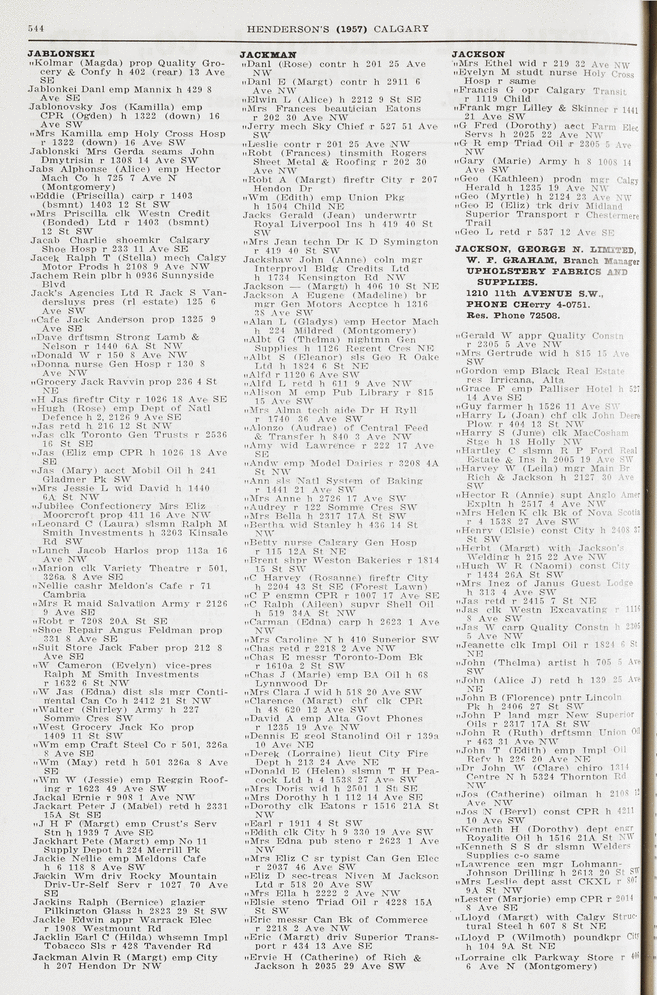 544
HENDERSON'S (1957) CALGARY
JABLONSKI
"Kolmar (Magda) prop Quality Gro-
cery & Confy h 402 (rear) 13 Ave
SE
Jablonkei Danl emp Mannix h 429 8
Ave SE
Jablonovsky Jos (Kamilla) emp
CPR (Ogden) h 1322 (down) 16
Ave SW
"Mrs Kamilla emp Holy Cross Hosp
r 1322 (down) 16 Ave SW
Jablonski Mrs Gerda seams John
Dmytrisin r 1308 14 Ave SW
Jabs Alphonse (Alice) emp Hector
Mach Co h 725 7 Ave N
(Montgomery)
"Eddie (Priscilla) carp r 1403
(bsmnt) 1403 12 St SW
"Mrs Priscilla clk Westn Credit
(Bonded) Ltd r 1403 (bsmnt)
12 St SW
Jacob Charlie shoemkr Calgary
Shoe Hosp r 233 11 Ave SE
Jacek Ralph T (Stella) mech Calgy
Motor Prods h 2108 9 Ave NW
Jachem Rein plbr h 0936 Sunnyside
Blvd
Jack's Agencies Ltd R Jack S Van-
dersluys pres (rl estate) 125 6
Ave SW
"Cafe Jack Anderson prop 1325 9
Ave SE
"Dave drftsmn Strong Lamb &
Nelson r 1440 6A St NW
"Donald W r 150 8 Ave NW
"Donna nurse Gen Hosp r 130 8
Ave NW
"Grocery Jack Ravvin prop 236 4 St
NE
"H Jas fireftr City r 1026 18 Ave SE
"Hugh (Rose) emp Dept of Natl
Defence h 2, 2126 9 Ave SE
"Jas retd h 216 12 St NW
"Jas clk Toronto Gen Trusts r 2536
16 St SE
"Jas (Eliz emp CPR h 1026 18 Ave
SE
"Jas (Mary) acct Mobil Oil h 241
Gladmer Pk SW
"Mrs Jessie L wid David h 1440
6A St NW
"Jubilee Confectionery Mrs Eliz
Moorcroft prop 411 16 Ave NW
"Leonard C (Laura) slsmn Ralph M
Smith Investments h 3203 Kinsale
Rd SW
"Lunch Jacob Harlos prop 113a 16
Ave NW
"Marion clk Variety Theatre r 501,
326a 8 Ave SE
"Nellie cashr Meldon's Cafe r 71
Cambria
"Mrs R maid Salvation Army r 2126
9 Ave SE
"Robt r 7208 20A St SE
"Shoe Repair Angus Feldman prop
331 8 Ave SE
"Suit Store Jack Faber prop 212 8
Ave SE
"W Cameron (Evelyn) vice-pres
Ralph M Smith Investments
r 1632 6 St NW
"W Jas (Edna) dist sls mgr Conti-
nental Can Co h 2412 21 St NW
"Walter (Shirley) Army h 227
Somme Cres SW
"West Grocery Jack Ko prop
1409 11 St SW
"Wm emp Craft Steel Co r 501, 326a
8 Ave SE
"Wm (May) retd h 501 326a 8 Ave
SE
"Wm W (Jessie) emp Reggin Roof-
ing r 1623 49 Ave SW
Jackal Ernie r 908 1 Ave NW
Jackart Peter J (Mabel) retd h 2331
15A St SE
"J H F (Margt) emp Crust's Serv
Stn h 1939 7 Ave SE
Jackhart Pete (Margt) emp No 11
Supply Depot h 224 Merrill Pk
Jackie Nellie emp Meldons Cafe
h 6 118 8 Ave SW
Jackin Wm driv Rocky Mountain
Driv-Ur-Self Serv r 1027 70 Ave
SE
Jackins Ralph (Bernice) glazier
Pilkington Glass h 2823 29 St SW
Jackle Edwin appr Warrack Elec
r 1908 Westmount Rd
Jacklin Earl C (Hilda) whsemn Impl
Tobacco Sls r 428 Tavender Rd
Jackman Alvin R (Margt) emp City
h 207 Hendon Dr NW
JACKMAN
"Danl (Rose) contr h 201 25 Ave
NW
"Danl E (Margt) contr h 2911 6
Ave NW
"Elwin L (Alice) h 2212 9 St SE
"Mrs Frances beautician Eatons
r 202 30 Ave NW
"Jerry mech Sky Chief r 527 51 Ave
SW
"Leslie contr r 201 25 Ave NW
"Robt (Frances) tinsmith Rogers
Sheet Metal & Roofing r 202 30
Ave NW
"Robt A (Margt) fireftr City r 207
Hendon Dr
"Wm (Edith) emp Union Pkg
h 1504 Child NE
Jacks Gerald (Jean) underwrtr
Royal Liverpool Ins h 419 40 St
SW
"Mrs Jean techn Dr K D Symington
r 419 40 St SW
Jackshaw John (Anne) coln mgr
Interprovl Bldg Credits Ltd
h 1734 Kensington Rd NW
Jackson — (Margt) h 406 10 St NE
Jackson A Eugene (Madeline) br
mgr Gen Motors Accptce h 1316
38 Ave SW
"Alan L (Gladys) emp Hector Mach
h 224 Mildred (Montgomery)
"Albt G (Thelma) nightmn Gen
Supplies h 1126 Regent Cres NE
"Albt S (Eleanor) sls Geo R Oake
Ltd h 1824 6 St NE
"Alfd r 1120 6 Ave SW
"Alfd L retd h 611 9 Ave NW
"Alison M emp Pub Library r 815
15 Ave SW
"Mrs Alma tech aide Dr H Ryll
r 1740 36 Ave SW
"Alonzo (Audrae) of Central Feed
& Transfer h 840 3 Ave NW
"Amy wid Lawrence r 222 17 Ave
SE
"Andw emp Model Dairies r 3208 4A
St NW
"Ann sls Natl System of Baking
r 1441 21 Ave SW
"Mrs Anne h 2726 17 Ave SW
"Audrey r 122 Somme Cres SW
"Mrs Bella h 2317 17A St SW
"Bertha wid Stanley h 436 14 St
NW
"Betty nurse Calgary Gen Hosp
r 115 12A St NE
"Brent shpr Weston Bakeries r 1814
15 St SW
"C Harvey (Rosanne) fireftr City
h 2204 43 St SE (Forest Lawn)
"C P engmn CPR r 1007 17 Ave SE
"C Ralph (Aileen) supvr Shell Oil
h 519 34A St NW
"Carman (Edna) carp h 2623 1 Ave
NW
"Mrs Caroline N h 410 Superior SW
"Chas retd r 2218 2 Ave NW
"Chas E messr Toronto-Dom Bk
r 1610a 2 St SW
"Chas J (Marie) emp BA Oil h 68
Lynnwood Dr
"Mrs Clara J wid h 518 20 Ave SW
"Clarence (Margt) chf clk CPR
h 48 620 12 Ave SW
"David A emp Alta Govt Phones
r 1235 19 Ave NW
"Dennis E geol Stanolind Oil r 139a
10 Ave NE
"Derek (Lorraine) lieut City Fire
Dept h 213 24 Ave NE
"Donald E (Helen) slsmn T H Pea-
cock Ltd h 4 1538 27 Ave SW
"Mrs Doris wid h 2501 1 St SE
"Mrs Dorothy h 1 112 14 Ave SE
"Dorothy clk Eatons r 1516 21A St
NW
"Earl r 1911 4 St SW
"Edith clk City h 9 330 19 Ave SW
"Mrs Edna pub steno r 2623 1 Ave
NW
"Mrs Eliz C sr typist Can Gen Elec
r 2037 46 Ave SW
"Eliz D sec-treas Niven M Jackson
Ltd r 518 20 Ave SW
"Mrs Ella h 2222 2 Ave NW
"Elsie steno Triad Oil r 4228 15A
St SW
"Eric messr Can Bk of Commerce
r 2218 2 Ave NW
"Eric (Margt) driv Superior Trans-
port r 434 13 Ave SE
"Ervie H (Catherine) of Rich &
Jackson h 2035 29 Ave SW
JACKSON
"Mrs Ethel wid r 219 32 Ave NW
"Evelyn M studt nurse Holy Cross
Hosp r same
"Francis G opr Calgary Transit
r 1119 Child
"Frank mgr Lilley & Skinner r 1441
21 Ave SW
"G Fred (Dorothy) acct Farm Elec
Servs h 2025 22 Ave NW
"G R emp Triad Oil r 2305 5 Ave
NW
"Gary (Marie) Army h 8 1008 14
Ave SW
"Geo (Kathleen) prodn mgr Calgy
Herald h 1235 19 Ave NW
"Geo (Myrtle) h 2124 23 Ave NW
"Geo E (Eliz) trk driv Midland
Superior Transport r Chestermere
Trail
"Geo L retd r 537 12 Ave SE
JACKSON, GEORGE N. LIMITED,
W. F. GRAHAM, Branch Manager
UPHOLSTERY FABRICS AND
SUPPLIES.
1210 11th AVENUE S.W.,
PHONE CHerry 4-0751.
Res. Phone 72508.
"Gerald W appr Quality Constn
r 2305 5 Ave NW
"Mrs Gertrude wid h 815 15 Ave
SW
"Gordon emp Black Real Estate
res Irricana, Alta
"Grace F emp Palliser Hotel h 527
14 Ave SE
"Guy farmer h 1526 11 Ave SW
"Harry L (Joan) chf clk John Deere
Plow r 404 12 St NW
"Harry S (June) clk MacCosham
Stge h 18 Holly NW
"Hartley C slsmn R P Ford Real
Estate & Ins h 2005 19 Ave SW
"Harvey W (Leila) mgr Main Br
Rich & Jackson h 2127 30 Ave
SW
"Hector R (Annie) supt Anglo Amer
Expltn h 2517 4 Ave NW
"Mrs Helen K clk Bk of Nova Scotia
r 4 1538 27 Ave SW
"Henry (Elsie) const City h 2408 37
St SW
"Herbt (Margt) with Jackson's
Welding h 215 22 Ave NW
"Hugh W R (Naomi) const City
r 1434 26A St SW
"Mrs Inez of Janus Guest Lodge
h 313 4 Ave SW
"Jas retd r 2415 7 St NE
"Jas clk Westn Excavating r 1116
8 Ave SW
"Jas W carp Quality Constn h 2305
5 Ave NW
"Jeanette clk Impl Oil r 1824 6 St
NE
"John (Thelma) artist h 705 5 Ave
SW
"John (Alice J) retd h 139 25 Ave
NE
"John B (Florence) pntr Lincoln
Pk h 2406 27 St SW
"John P land mgr New Superior
Oils r 2317 17A St SW
"John R (Ruth) drftsmn Union Oil
r 463 31 Ave NW
"John T (Edith) emp Impl Oil
Refy h 226 20 Ave NE
"Dr John W (Clare) chiro 1314
Centre N h 5324 Thornton Rd
NW
"Jos (Catherine) oilman h 2108 11
Ave NW
"Jos N (Beryl) const CPR h 4211
10 Ave SW
"Kenneth H (Dorothy) dept engr
Royalite Oil h 1516 21A St NW
"Kenneth S S dr slsmn Welders
Supplies c-o same
"Lawrence gen mgr Lohmann-
Johnson Drilling h 2613 20 St SW
"Mrs Leslie dept asst CKXL r 807
9A St NW
"Lester (Marjorie) emp CPR r 2014
8 Ave SE
"Lloyd (Margt) with Calgy Struc-
tural Steel h 607 8 St NE
"Lloyd P (Wilmoth) poundkpr City
h 104 9A St NE
"Lorraine clk Parkway Store r
6 Ave N (Montgomery)